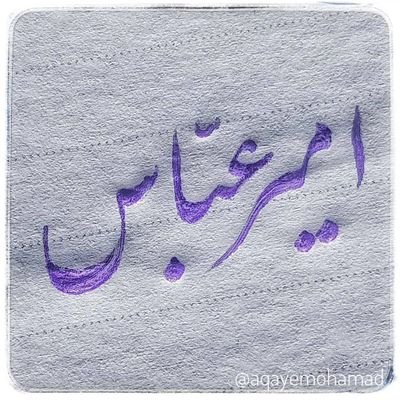 امیر عبّاس
@aqayemohamad